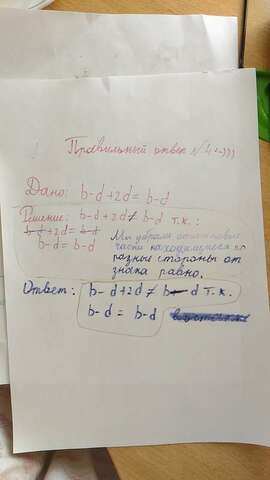 Правильный ответ
Дано: b-d+2d = b-d
Решение: b-d+2d ≠ b-d т.к.:
b-d+2d = b-d
b-d = b-d
Мы убрали одинаковые
части находящиеся по
разные стороны от
знака равно.
Ответ: b-d+2d ≠ b-d т.к.
b-d = b-d